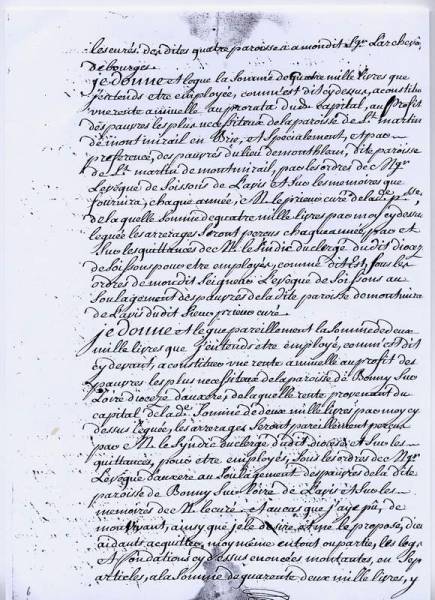 les curés desdites quatre paroisse à mondit Sgr. L'archeve
de bourges.
je donne et legue la Somme de quatre mille livres que
j'entends etre employée, comm'est dit cydessus, a constituer
une rente annuelle au prorata dudt. capital, au Profit
des pauvres les plus necessiteux de la paroisse de St. martin
de montmirail en Brie, et Specialement, et par
preference, des pauvres du lieu de montléan, dite paroisse
de St. martin de montmirail, par les ordres de Mgr.
L'evêque de Soissons de L'avis et Sur les memoires que
fournira, chaque année, M. le prieur curé de lade. psse,
de laquelle Somme de quatre mille livres par moy cy dessus
leguée les arrerages Seront perçus chaque année, par et
Sur les quittances de M. le Sindic du clergé dudit diocez
de Soissons pour etre employés, comme dit Est, Sous les
ordres de mondit Seigneur L'evêque de Soissons au
Soulagement des pauvres de la dite paroisse de montmira
de L'avis dudit Sieur prieur curé
je donne et legue pareillement la Somme de deux
mille livres que j'entends etre employé, comm'est dit
cy devant, a constituer une rente annuelle au profit des
pauvres les plus necessiteux de la paroisse de Bonny Sur
Loire diocéze d'auxerre, de laquelle rente provenant du
capital de lade. Somme de deux mille livres par moy cy
dessus leguée, les arrerages Seront pareillement perçus
par M. le Syndic du clergé dudit diocése et Sur les
quittances, pour etre employés, Sous les ordres de Mgr.
L'evêque d'auxerre au Soulagement des pauvres de la dite
paroisse de Bonny Sur loire de L'avis et Sur les
memoires de M. le curé et au cas que j'aye pû, de
mon vivant, ainsy que je le desire et me le propose, dieu
aidant, acquitter, moy même en tout ou partie, les legs
et fondations cy dessus enoncées montantes, en Sept
articles, a la Somme de quarente deux mille livres, y